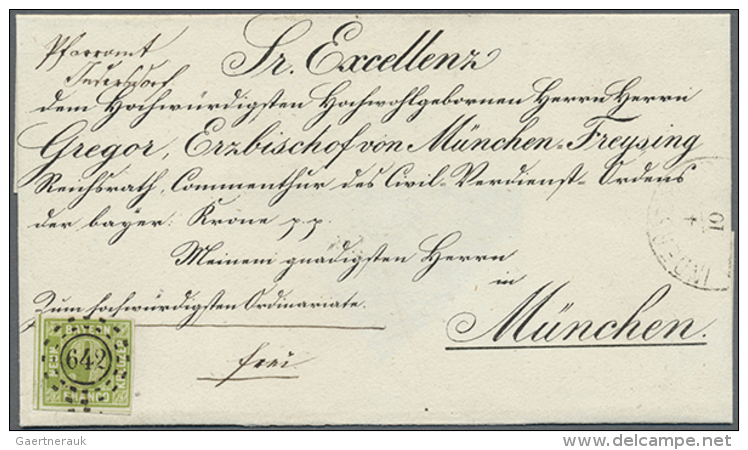 Pfarramt
Indersdorf
Sr. Excellenz
dem Hochwürdigsten Hochwohlgebornen Herrn Herrn
Gregor, Erzbischof von München-Freysing
Reichsrath, Commenthur des Civil-Verdienst-Ordens
der bayer: Krone p.p.
Meinem gnädigsten Herrn
in
München.
Zum hochwürdigsten Ordinariate.
frei
BAYERN
SECHS
KREUZER
FRANCO
642
INDER
4
10
Gaertnerauk
www.delcampe.net